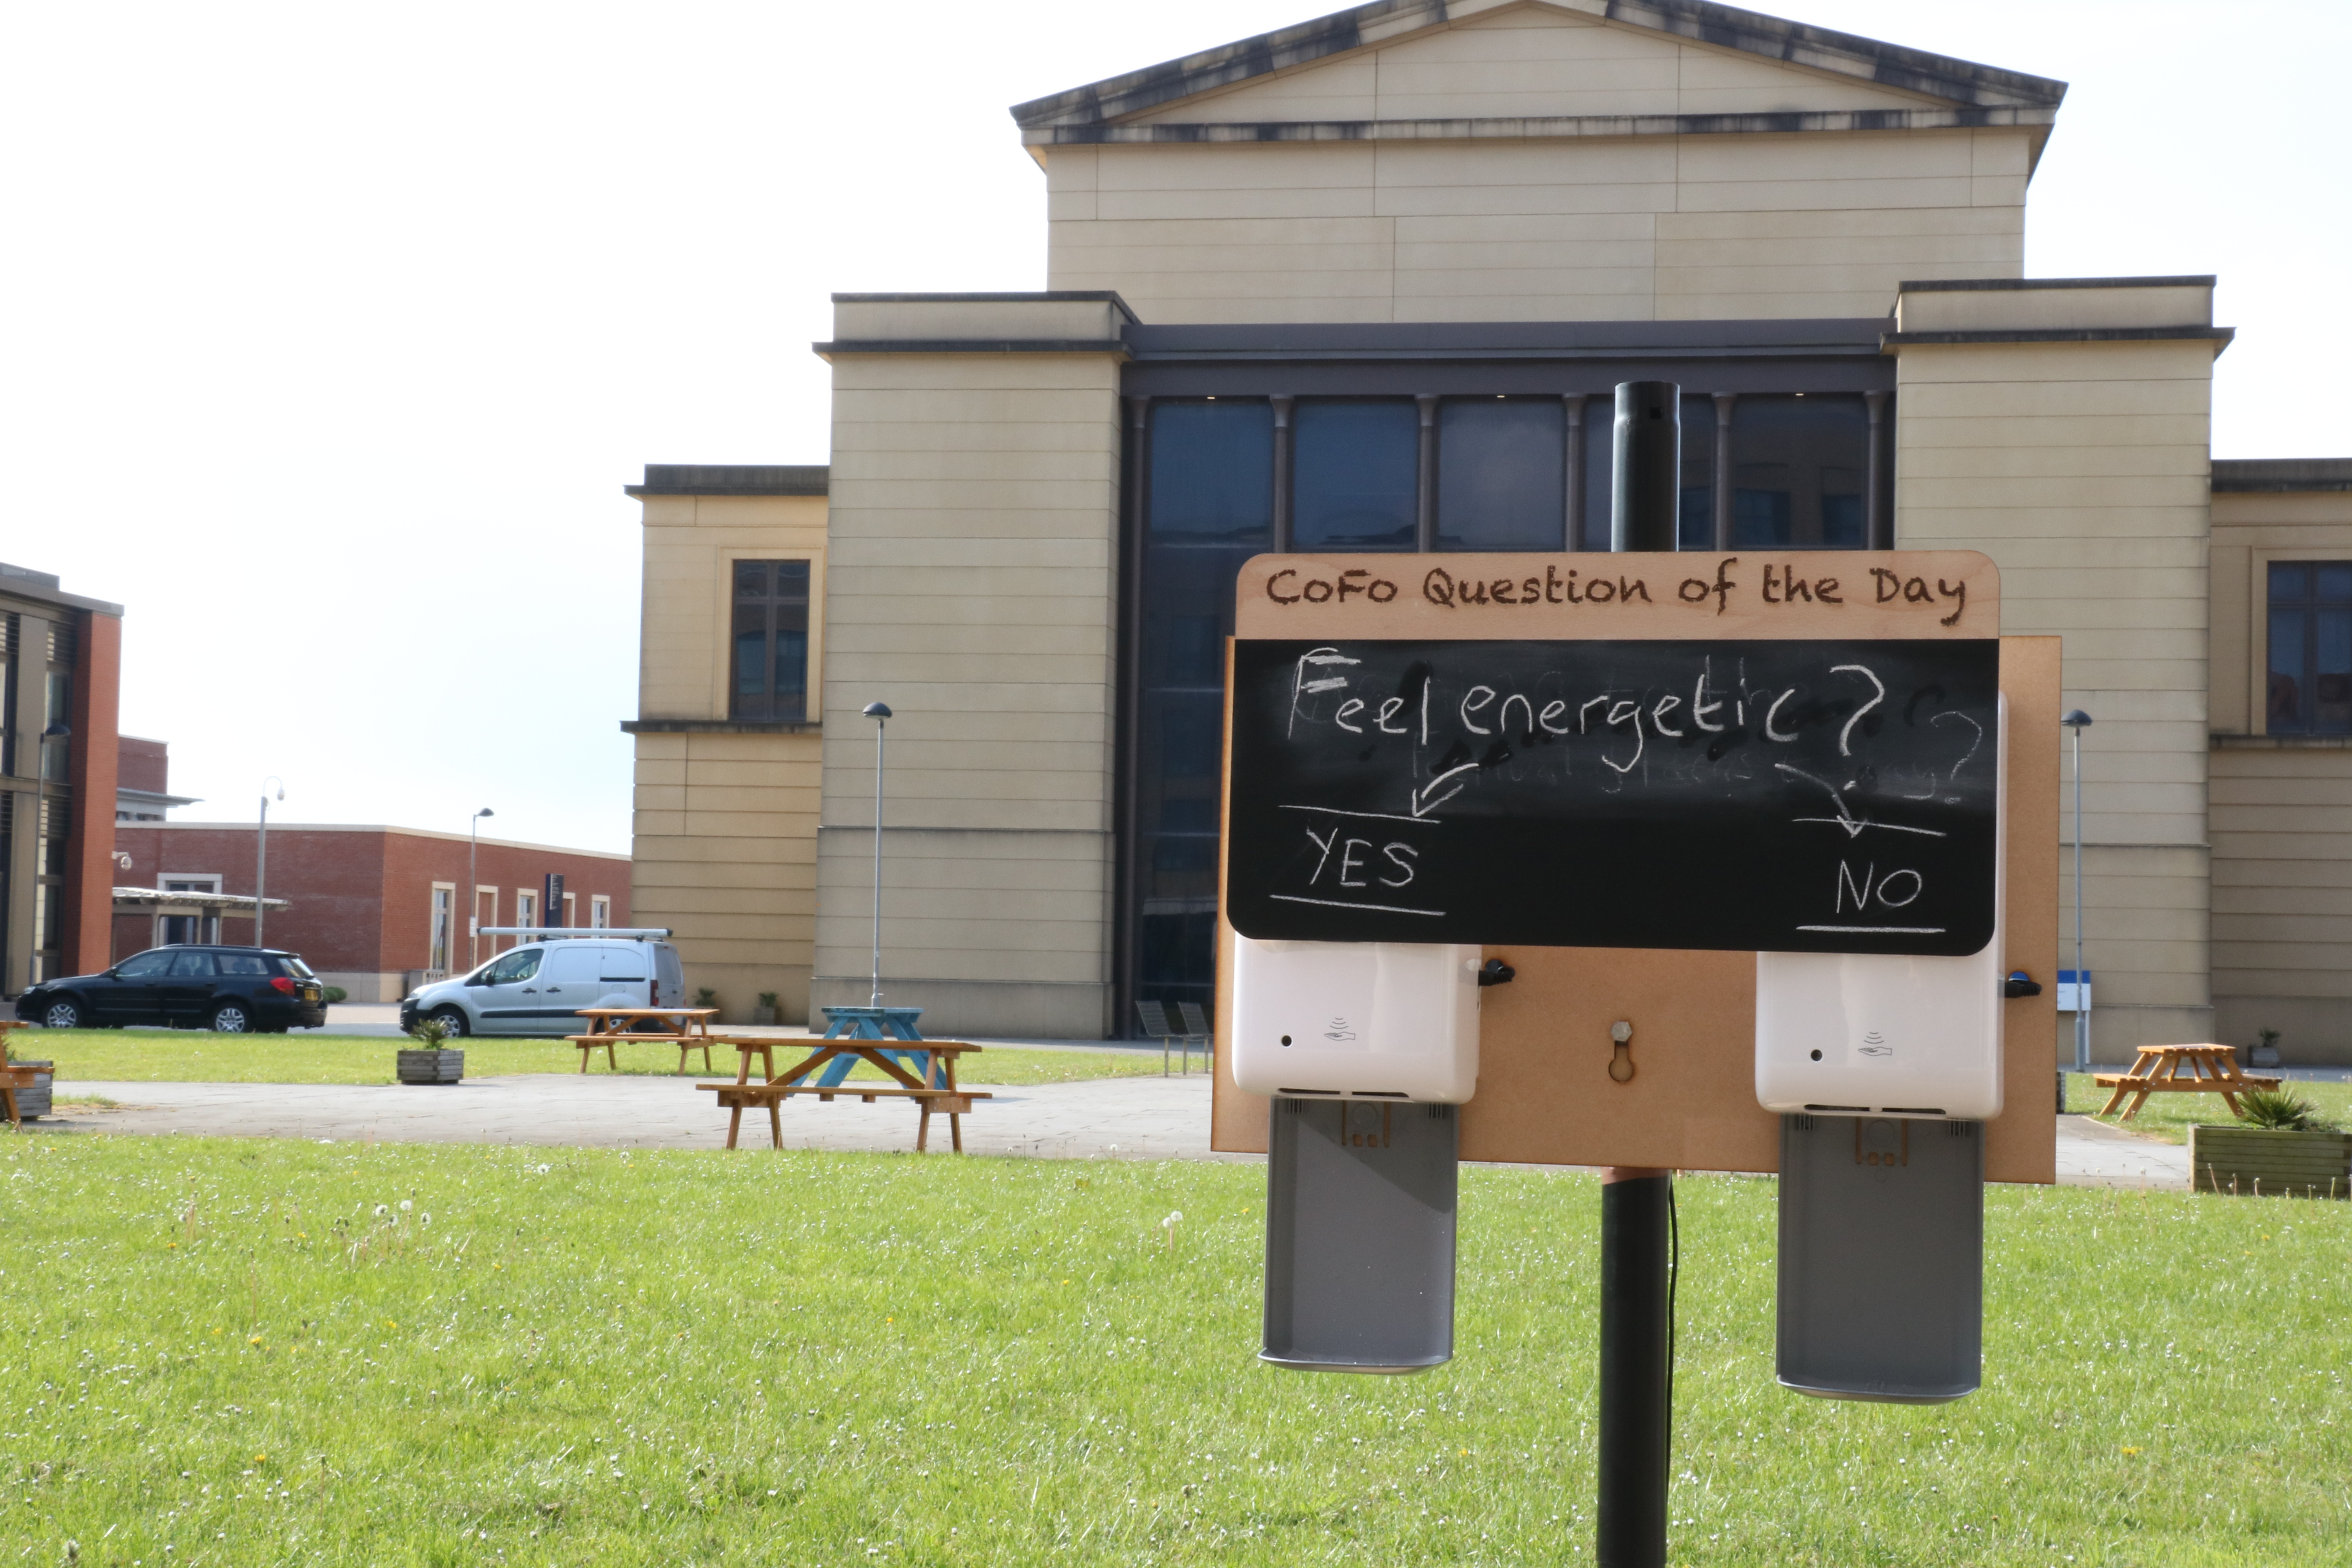 CoFo Question of the Day
Feel energetic?
YES
NO